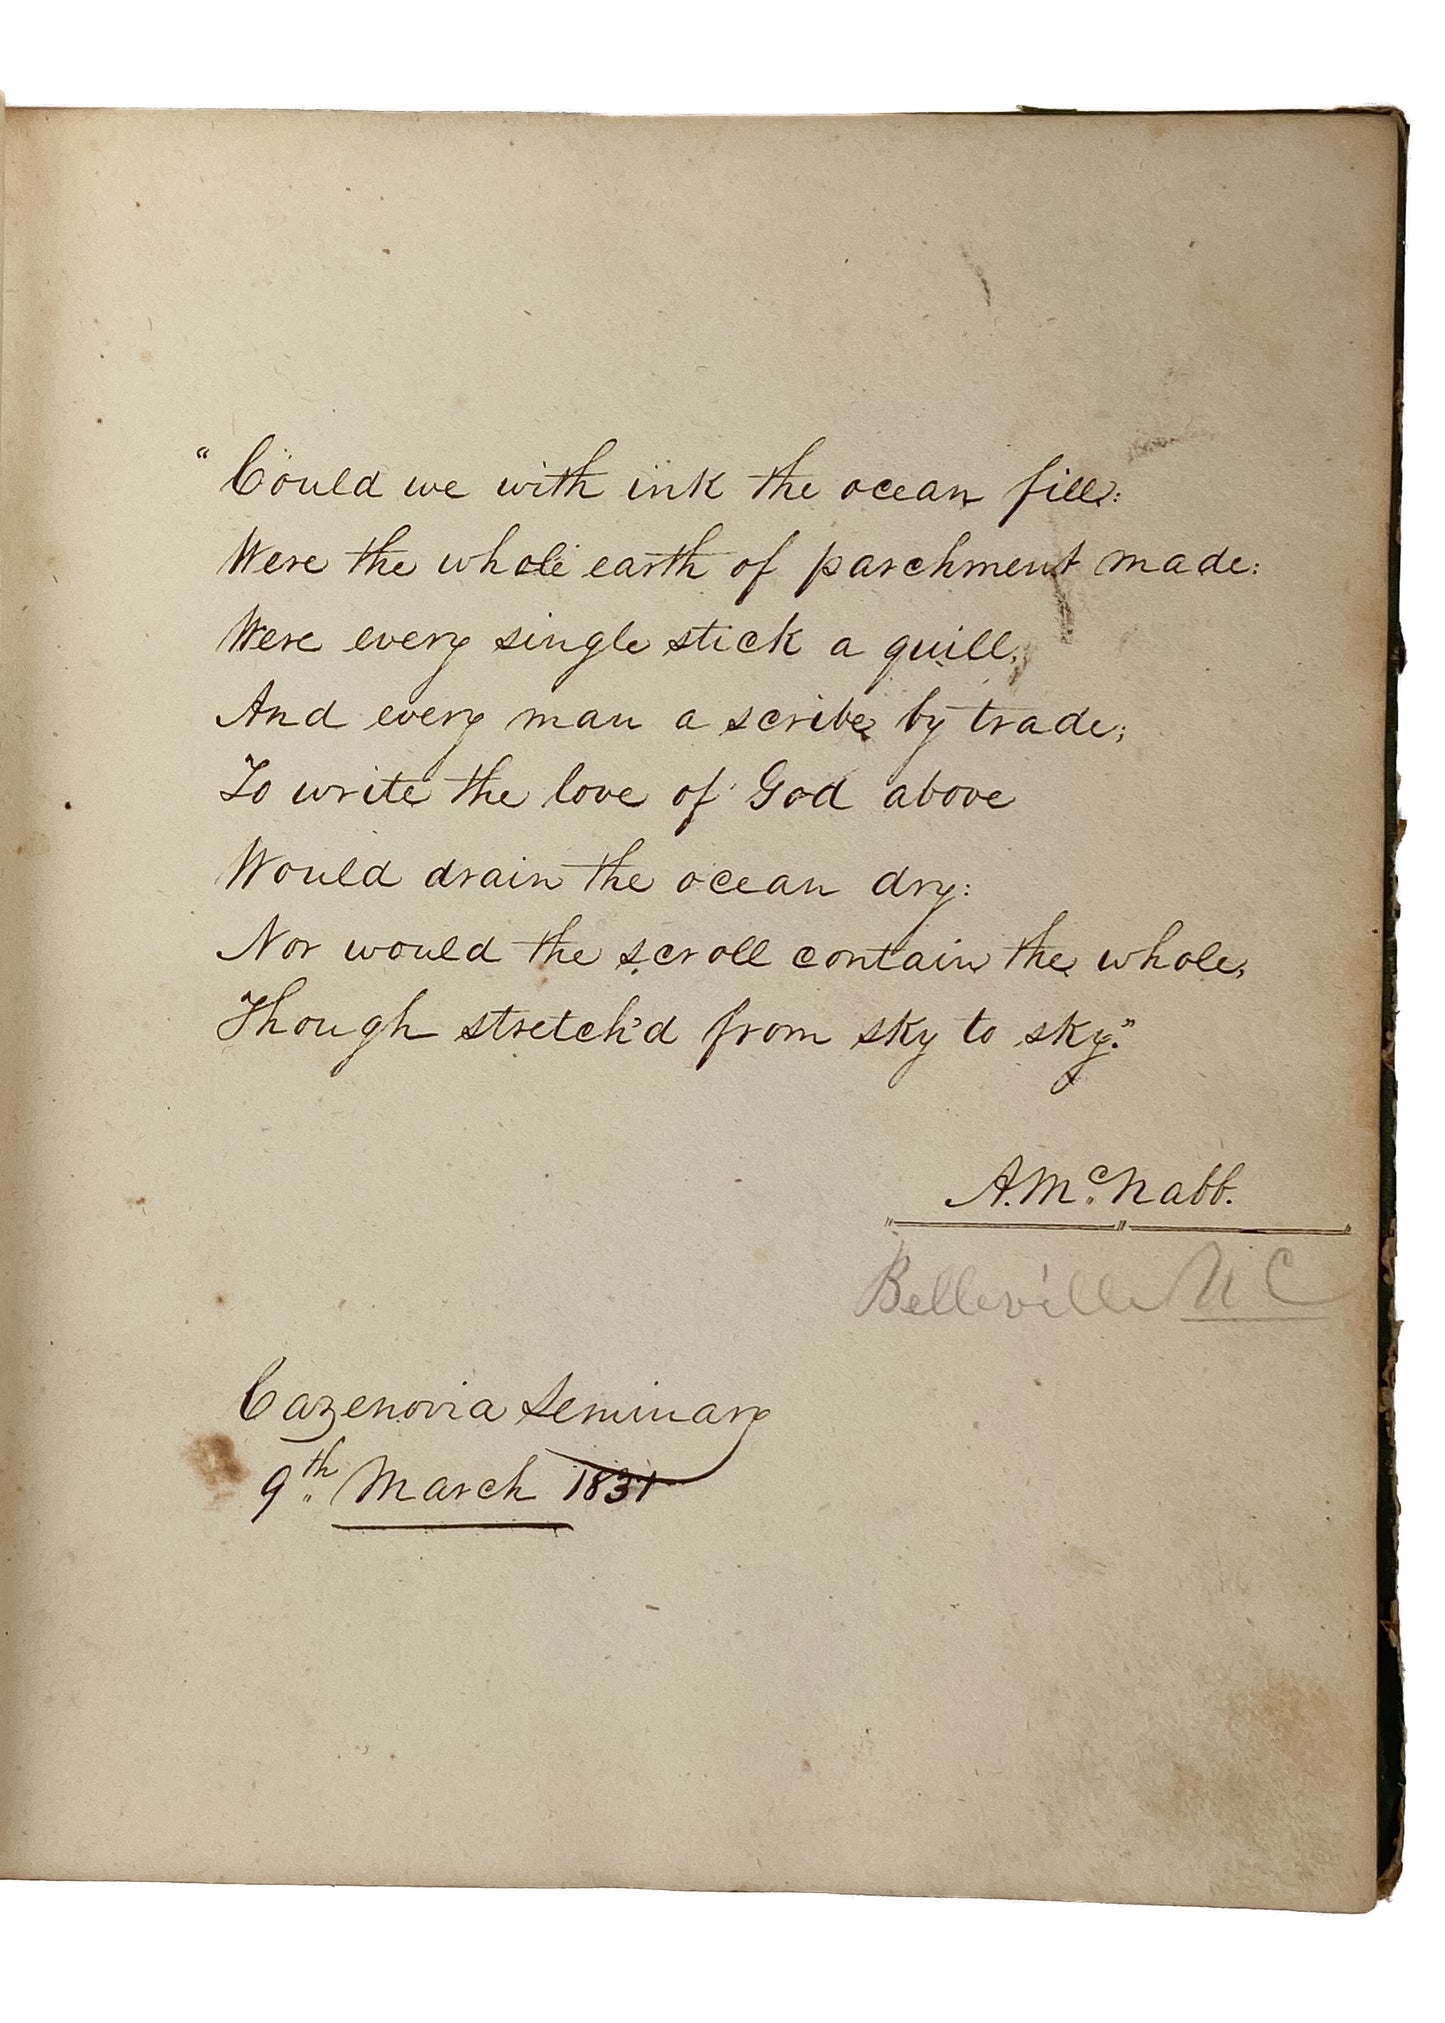 “Could we with ink the ocean fill:
Were the whole earth of parchment made:
Were every single stick a quill,
And every man a scribe by trade;
To write the love of God above
Would drain the ocean dry:
Nor would the scroll contain the whole,
Though stretch'd from sky to sky.”
A. Mc. Nabb.
Belleville U C
Cazenovia Seminary
9th. March 1831